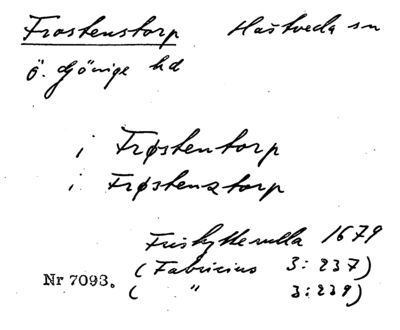 Frostenstorp Hästveda sn
Ö. Göinge hd
i Frøstentorp
i Frøstenstorp
Friskytterulla 1679
(Fabricius 3:237)
Nr 7093. ( " 3:239)